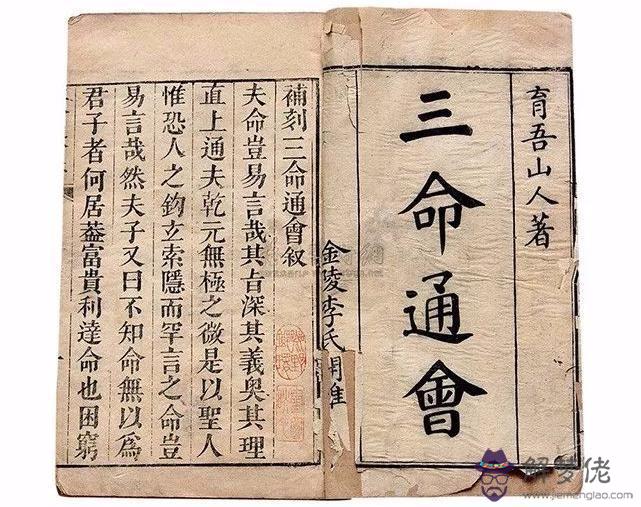 育吾山人著
三命通會
金陵李氏
補刻三命通會叙
夫命豈易言哉其旨深其義奥其理
直上通夫乾元無極之微是以聖人
惟恐人之鈎玄索隱而罕言之命豈
易言哉然夫子又曰不知命無以為
君子者何居葢富貴利達命也困窮
解梦佬
www.jiemenglao.com